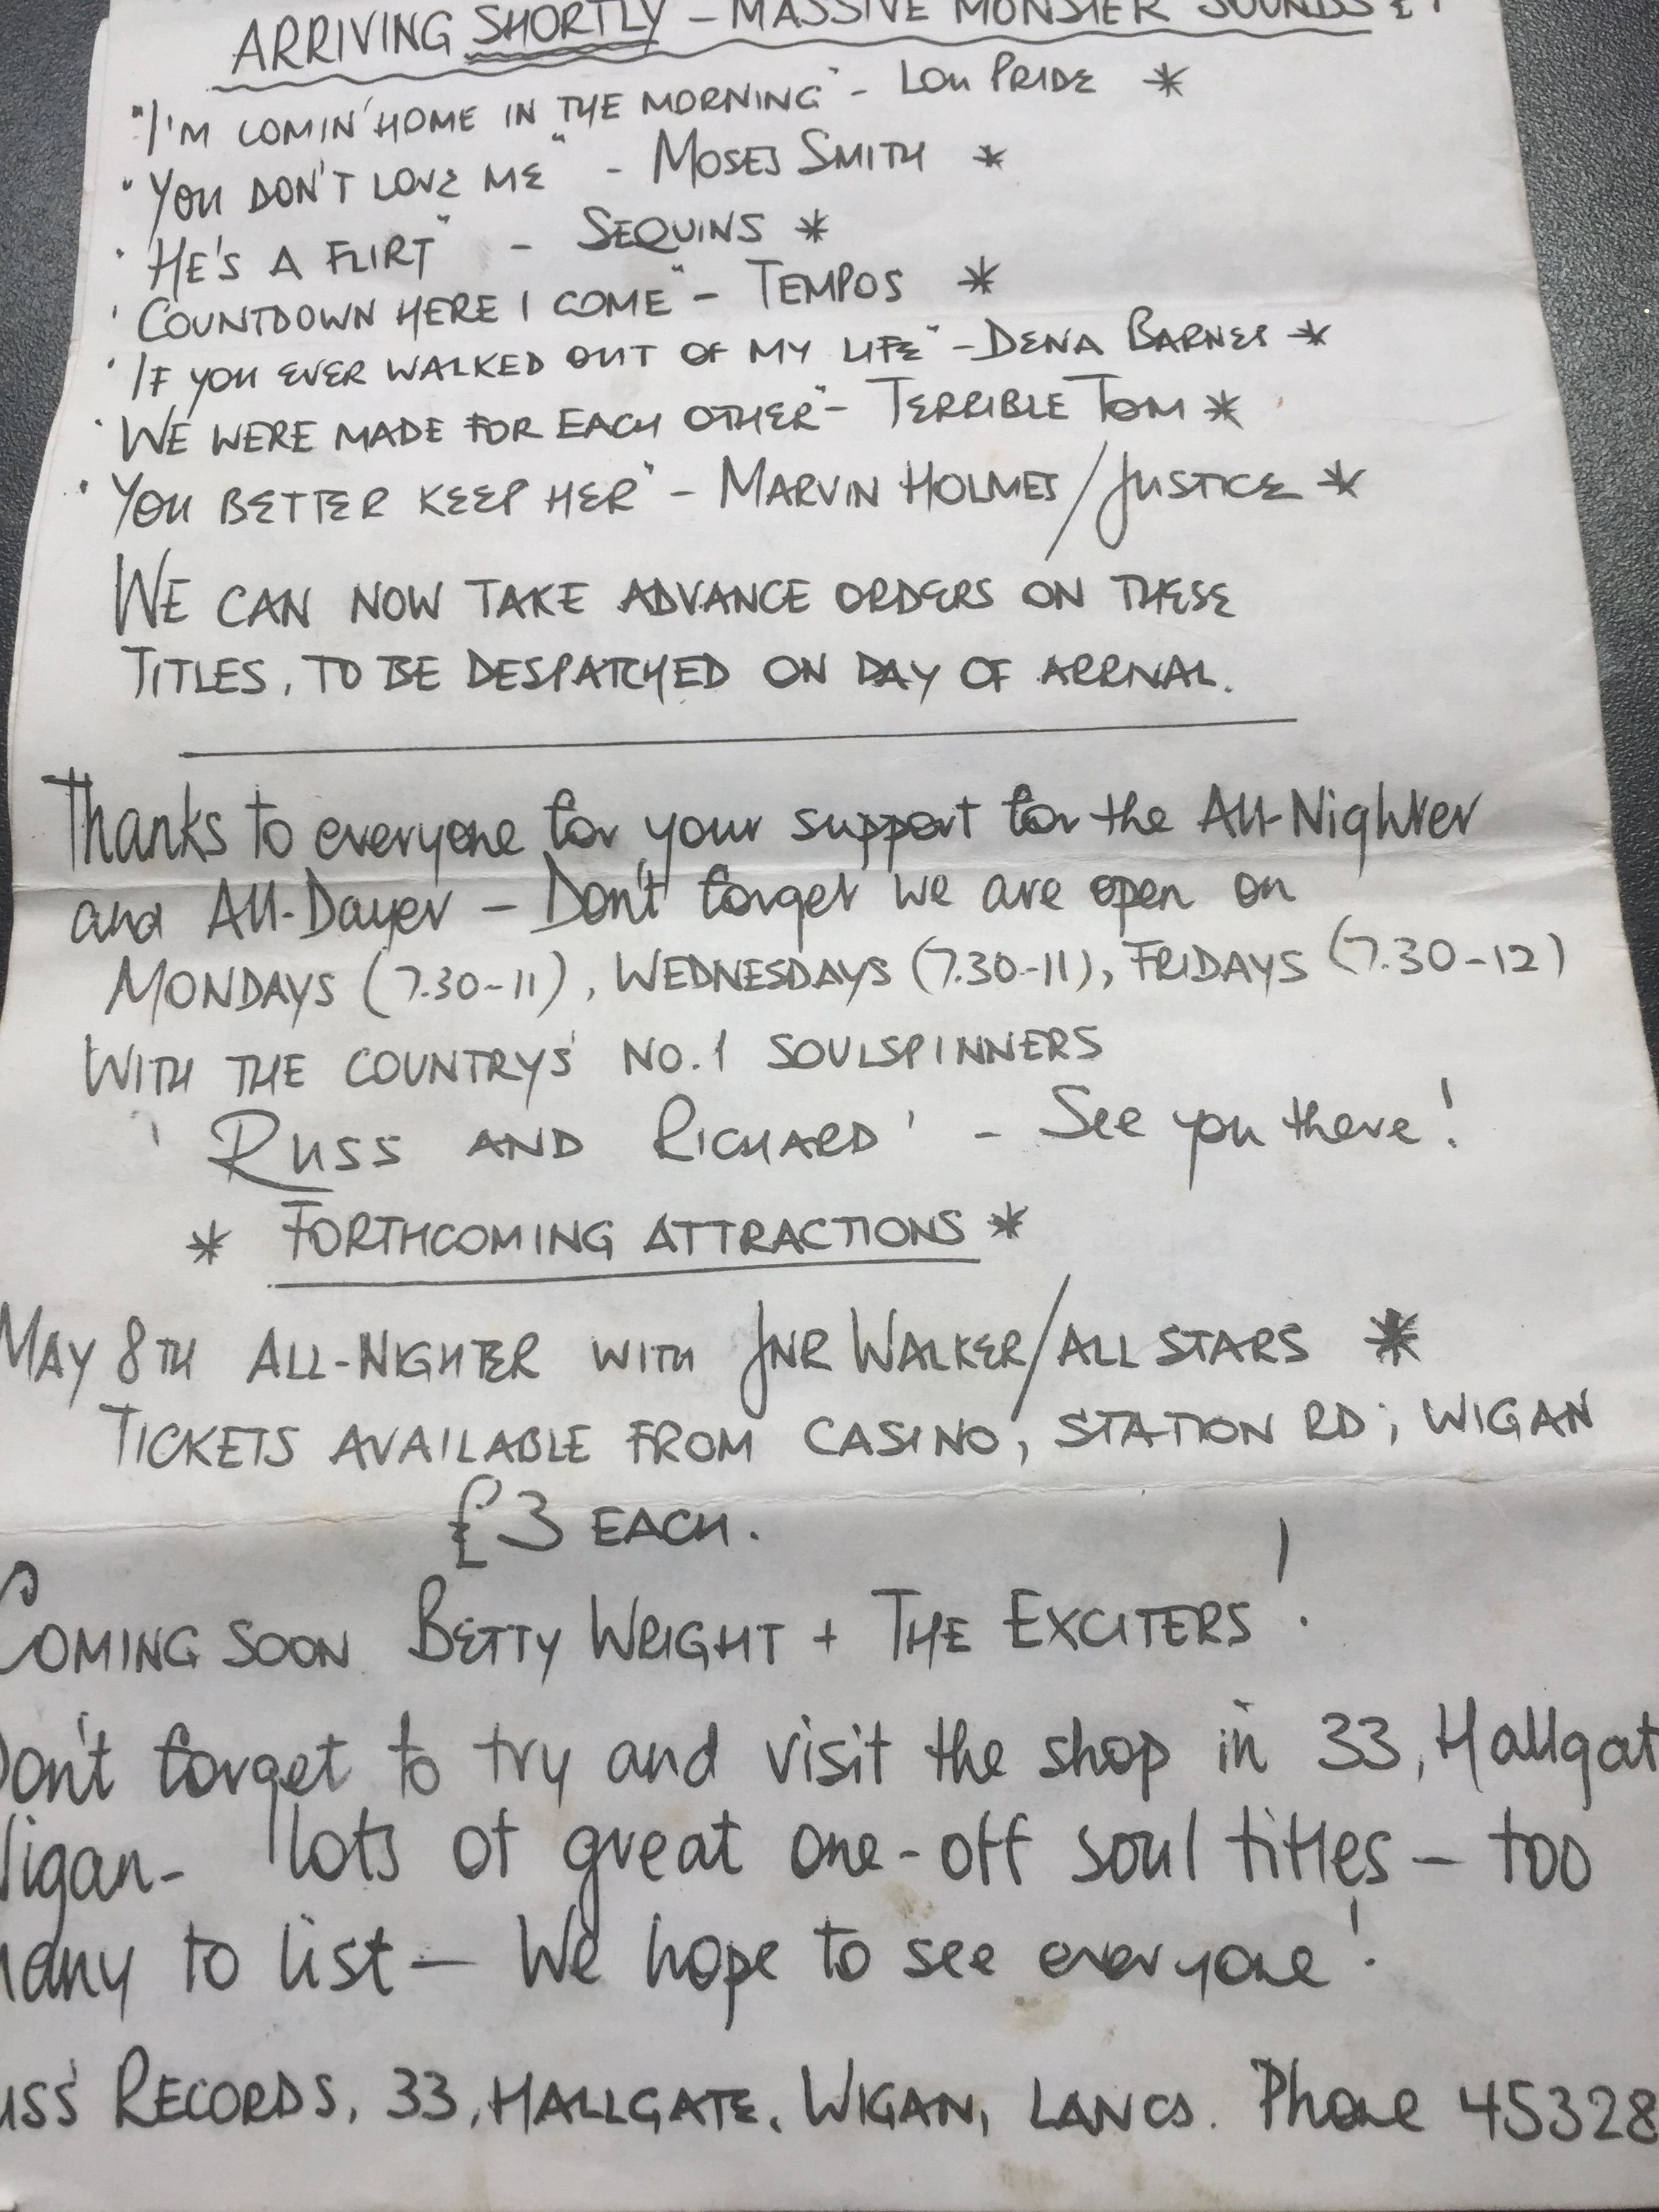 ARRIVING SHORTLY - MASSIVE MONSTER SOUNDS
"I'M COMIN' HOME IN THE MORNING" - LOU PRIDE *
"YOU DON'T LOVE ME" - MOSES SMITH *
"HE'S A FLIRT" - SEQUINS *
'COUNTDOWN HERE I COME" - TEMPOS *
'IF YOU EVER WALKED OUT OF MY LIFE" - DENA BARNES *
'WE WERE MADE FOR EACH OTHER" - TERRIBLE TOM *
'YOU BETTER KEEP HER" - MARVIN HOLMES/JUSTICE *
WE CAN NOW TAKE ADVANCE ORDERS ON THESE
TITLES, TO BE DESPATCHED ON DAY OF ARRIVAL.
Thanks to everyone for your support for the All-Nighter
and All-Dayer - Don't forget we are open on
MONDAYS (7.30-11), WEDNESDAYS (7.30-11), FRIDAYS (7.30-12)
WITH THE COUNTRY'S NO.1 SOULSPINNERS
'RUSS AND RICHARD' - See you there!
* FORTHCOMING ATTRACTIONS *
MAY 8TH ALL-NIGHTER WITH JNR WALKER/ALL STARS *
TICKETS AVAILABLE FROM CASINO, STATION RD; WIGAN
£3 EACH.
COMING SOON BETTY WRIGHT + THE EXCITERS!
Don't forget to try and visit the shop in 33, Hallgat
igan - lots of great one-off soul titles - too
many to list - We hope to see everyone!
uss' RECORDS, 33, HALLGATE, WIGAN, LANCS. Phone 45328